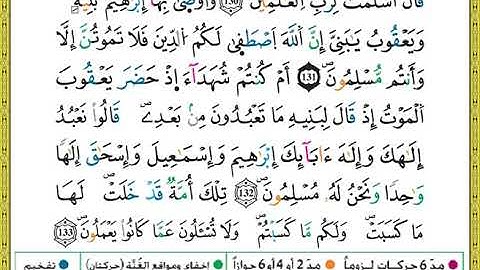 قَالَ أَسْلَمْتُ لِرَبِّ الْعَٰلَمِينَ (130) وَأَوْصَىٰ بِهَا إِبْرَٰهِيمُ بَنِيهِ
وَيَعْقُوبُ يَٰبَنِيَّ إِنَّ اللَّهَ اصْطَفَىٰ لَكُمُ الدِّينَ فَلَا تَمُوتُنَّ إِلَّا
وَأَنتُم مُّسْلِمُونَ (131) أَمْ كُنتُمْ شُهَدَآءَ إِذْ حَضَرَ يَعْقُوبَ
الْمَوْتُ إِذْ قَالَ لِبَنِيهِ مَا تَعْبُدُونَ مِنۢ بَعْدِے قَالُوا۟ نَعْبُدُ
إِلَٰهَكَ وَإِلَٰهَ ءَابَآئِكَ إِبْرَٰهِيمَ وَإِسْمَٰعِيلَ وَإِسْحَٰقَ إِلَٰهًا
وَٰحِدًا وَنَحْنُ لَهُۥ مُسْلِمُونَ (132) تِلْكَ أُمَّةٌ قَدْ خَلَتْ لَهَا
مَا كَسَبَتْ وَلَكُم مَّا كَسَبْتُمْ وَلَا تُسْـَٔلُونَ عَمَّا كَانُوا۟ يَعْمَلُونَ (133)
مدّ 6 حركات لزوماً مدّ 2 أو 4 أو 6 جوازاً إخفاء، ومواقع الغُنَّة (حركتان) تفخيم